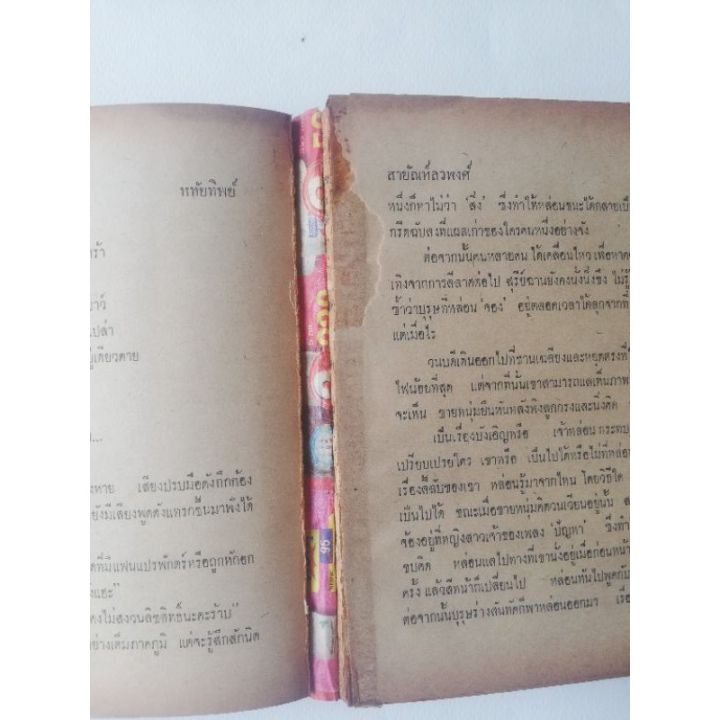 หทัยทิพย์
ร้า
าวี
เปล่า
ผู้เดียวดาย
...
งหาย เสียงปรบมือดังกึกก้อง
ยังมีเสียงพูดดังแทรกขึ้นมาพึงได้
ดที่มีแฟนแปรพักตร์หรือถูกหักอก
งแฮะ"
คงไม่สงวนลิขสิทธิ์นะคะร้าบ"
อย่างเต็มภาคภูมิ แต่จะรู้สึกสักนิด
สายัณห์ลวพงศ์
หนึ่งก็หาไม่ว่า 'สิ่ง' ซึ่งทำให้หล่อนชนะได้กลายเป็
กรีดฉับลงที่แผลเก่าของใครคนหนึ่งอย่างจัง
ต่อจากนั้นคนหลายคน ได้เคลื่อนไหว เพื่อหาค
เทิงจากการลีลาศต่อไป สุรีย์ฉานยังคงนั่งนิ่งขึง ไม่รู้
ช้ำว่าบุรุษที่หล่อน 'จอง' อยู่ตลอดเวลาได้ลุกจากที่
แต่เมื่อไร
วนบดีเดินออกไปที่ชานเฉลียงและหยุดตรงที่
ไฟน้อยที่สุด แต่จากที่นั้นเขาสามารถแลเห็นภาพ
จะเห็น ชายหนุ่มยืนหันหลังพิงลูกกรงและนิ่งคิด
เป็นเรื่องบังเอิญหรือ เจ้าหล่อน กระทบ
เปรียบเปรยใคร เขาหรือ เป็นไปได้หรือไม่ที่หล่อน
เรื่องลี้ลับของเขา หล่อนรู้มาจากไหน โดยวิธีใด
เป็นไปได้ ขณะเมื่อชายหนุ่มคิดวนเวียนอยู่นั้น ส
จ้องอยู่ที่หญิงสาวเจ้าของเพลง 'ปัญหา' ซึ่งทำ
ขบคิด หล่อนแลไปทางที่เขานั่งอยู่เมื่อก่อนหน้า
ครั้ง แล้วสีหน้าก็เปลี่ยนไป หล่อนหันไปพูดกับ
ต่อจากนั้นบุรุษร่างสันทัดก็พาหล่อนออกมา เรื่อ